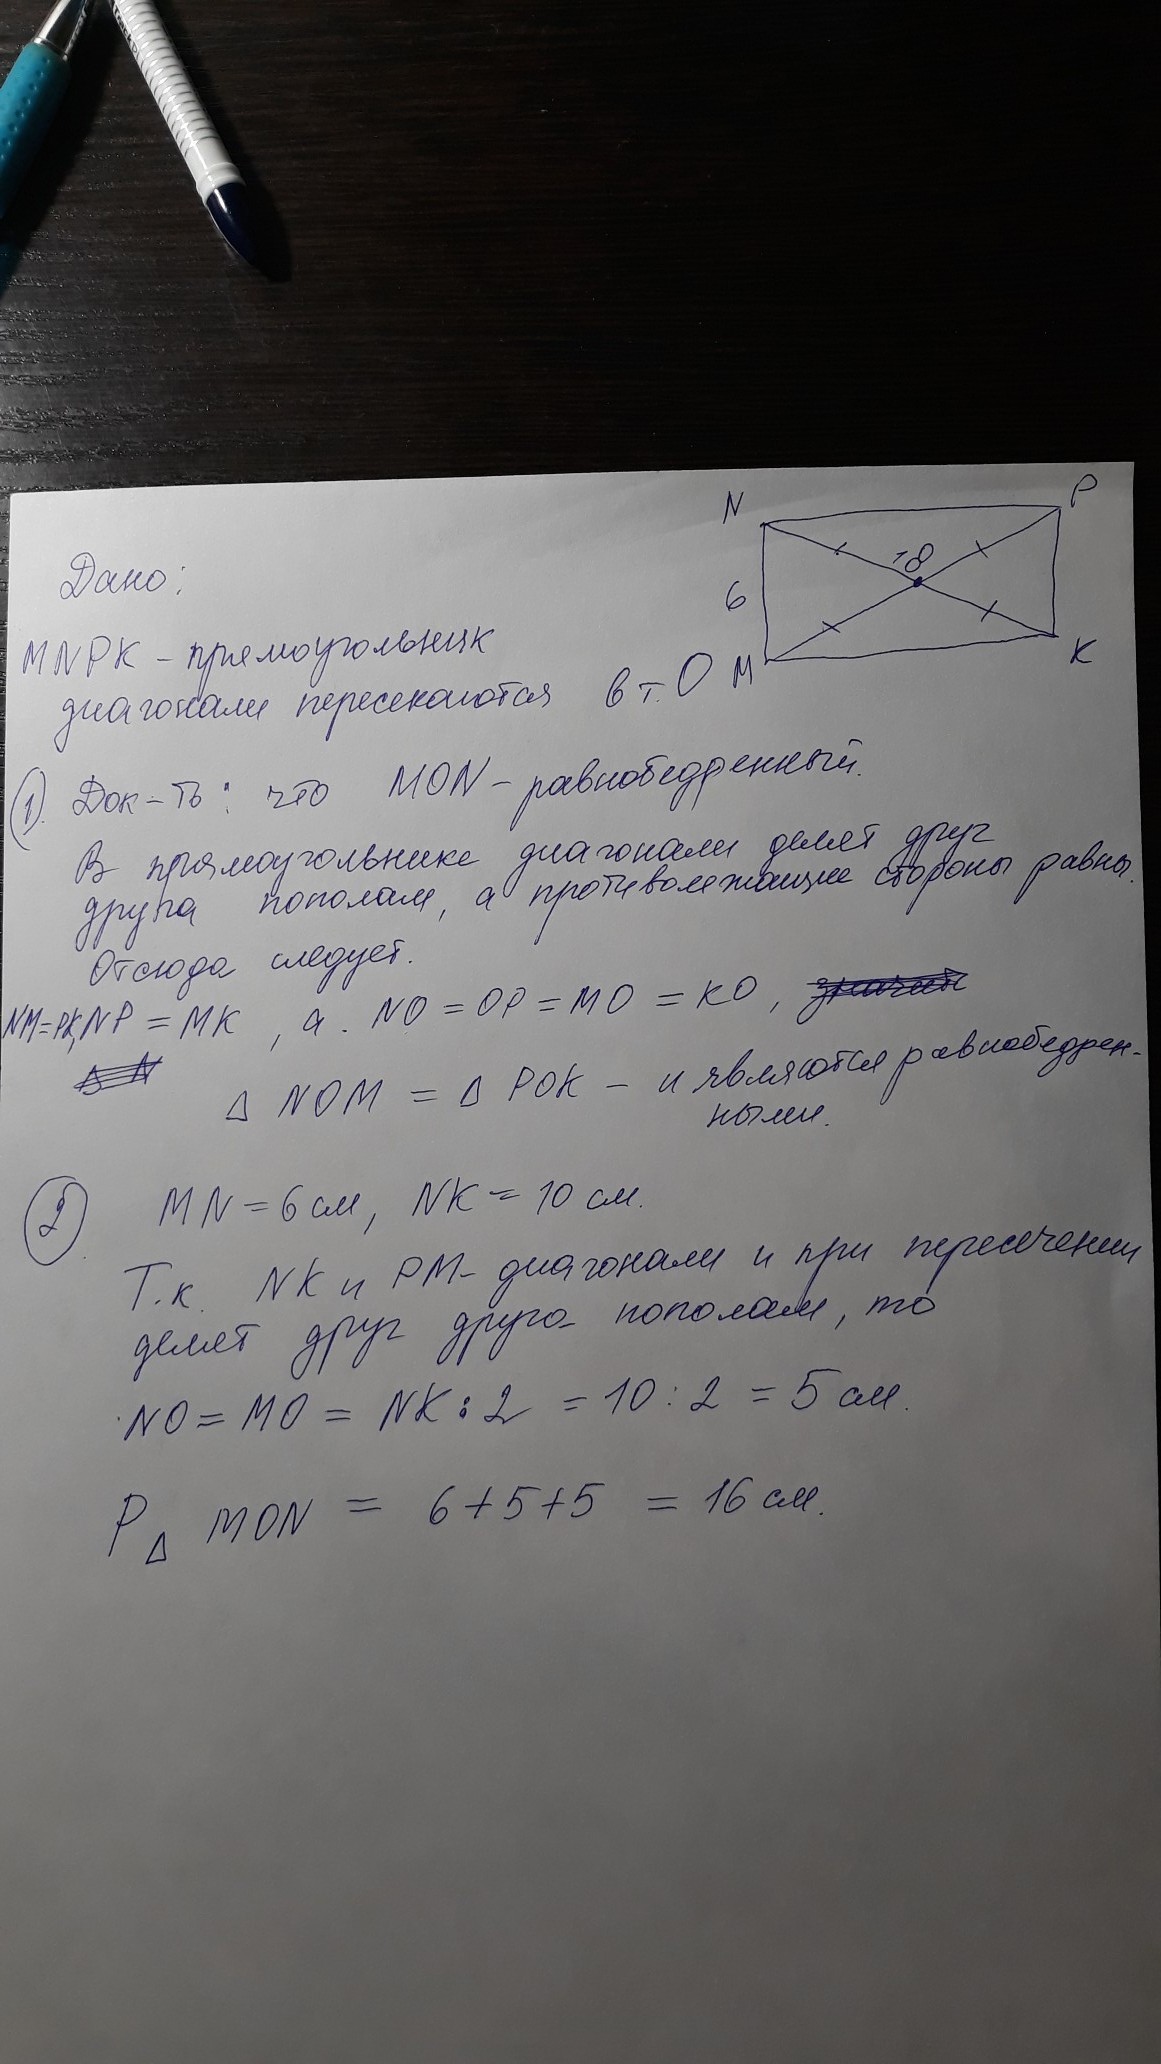 N
P
10
Дано:
6
MNPK - прямоугольник
M
K
диагонали пересекаются в т. O
1. Док-ть: что MON - равнобедренный.
В прямоугольнике диагонали делят друг
друга пополам, а противолежащие стороны равны.
Отсюда следует.
NM=PK, NP = MK, а. NO = OP = MO = KO,
Δ NOM = Δ POK - и являются равнобедрен-
ными.
2 MN = 6 см, NK = 10 см.
Т.к. NK и PM - диагонали и при пересечении
делят друг друга пополам, то
NO = MO = NK : 2 = 10 : 2 = 5 см.
P Δ MON = 6 + 5 + 5 = 16 см.